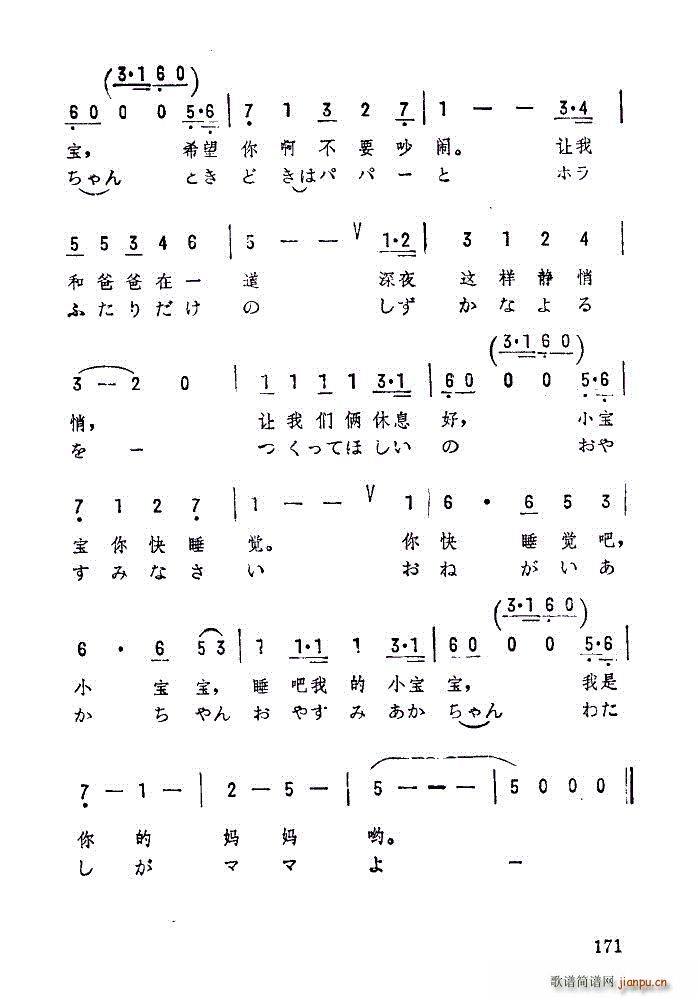 (3·1 6 0)
6 0 0 0 5·6 | 7 1 3 2 7 | 1 — — 3·4 |
宝， 希望 你 啊 不 要 吵 闹。 让我
ちゃん ときどきはパパーと ホラ
5 5 3 4 6 | 5 — — V 1·2 | 3 1 2 4 |
和 爸 爸 在 一 道 深夜 这 样 静 悄
ふ た り だ け の しず か な よ る
(3·1 6 0)
3 — — 2 0 | 1 1 1 1 3·1 | 6 0 0 0 5·6 |
悄， 让 我 们 俩 休息 好， 小宝
を ー つくってほしいの おや
7 1 2 7 | 1 — — V 1 | 6 · 6 5 3 |
宝 你 快 睡 觉。 你 快 睡 觉 吧，
す み な さ い お ね が い あ
(3·1 6 0)
6 · 6 5 3 | 1 1·1 1 3·1 | 6 0 0 0 5·6 |
小 宝 宝， 睡 吧我 的 小宝 宝， 我是
か ち ゃん お やす み あか ちゃん わた
7 — 1 — | 2 — 5 — | 5 — — — | 5 0 0 0 ‖
你 的 妈 妈 哟。
し が マ マ よ ー
171
歌谱简谱网
jianpu.cn